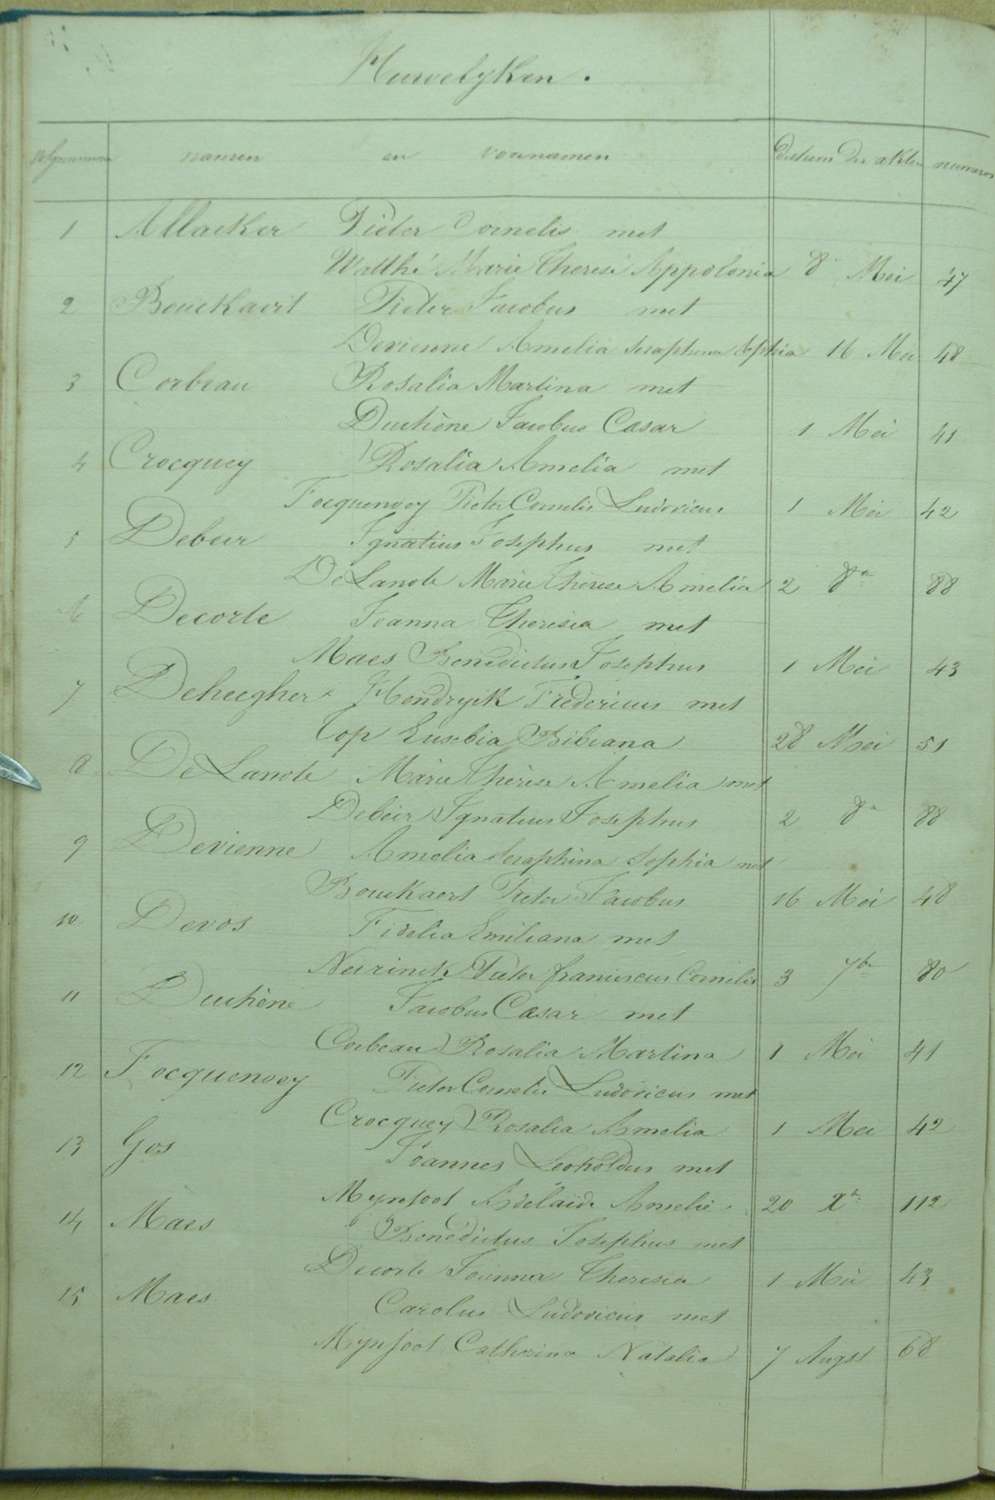 Huwelyken.
volgnummer namen en voornamen Datum der akten nummers
1 Allacker Pieter Cornelis met
Walthé Marie Therese Appolonia 8 Mei 47
2 Bouckaert Pieter Jacobus met
Devienne Amelia Seraphina Sophia 16 Mei 48
3 Corbeau Rosalia Martina met
Duchène Jacobus Cæsar 1 Mei 41
4 Crocquey Rosalia Amelia met
Focquenoey Pieter Cornelis Ludovicus 1 Mei 42
5 Debeir Ignatius Josephus met
De Lanote Marie Thérèse Amelia 2 8ber 88
6 Decorte Joanna Theresia met
Maes Benedictus Josephus 1 Mei 43
7 Deheegher Hendryck Fredericus met
Top Eusebia Bibiana 28 Mei 51
8 De Lanote Marie Thérèse Amelia met
Debeir Ignatius Josephus 2 8ber 88
9 Devienne Amelia Seraphina Sophia met
Bouckaert Pieter Jacobus 16 Mei 48
10 Devos Fidelia Emiliana met
Neirinck Pieter Franciscus Cornelis 3 7ber 80
11 Duchène Jacobus Cæsar met
Corbeau Rosalia Martina 1 Mei 41
12 Focquenoey Pieter Cornelis Ludovicus met
Crocquey Rosalia Amelia 1 Mei 42
13 Gos Joannes Leopoldus met
Mynsoot Adelaïde Amelie 20 Xber 112
14 Maes Benedictus Josephus met
Decorte Joanna Theresia 1 Mei 43
15 Maes Carolus Ludovicus met
Mynsoot Catharina Natalia 7 Augst 68